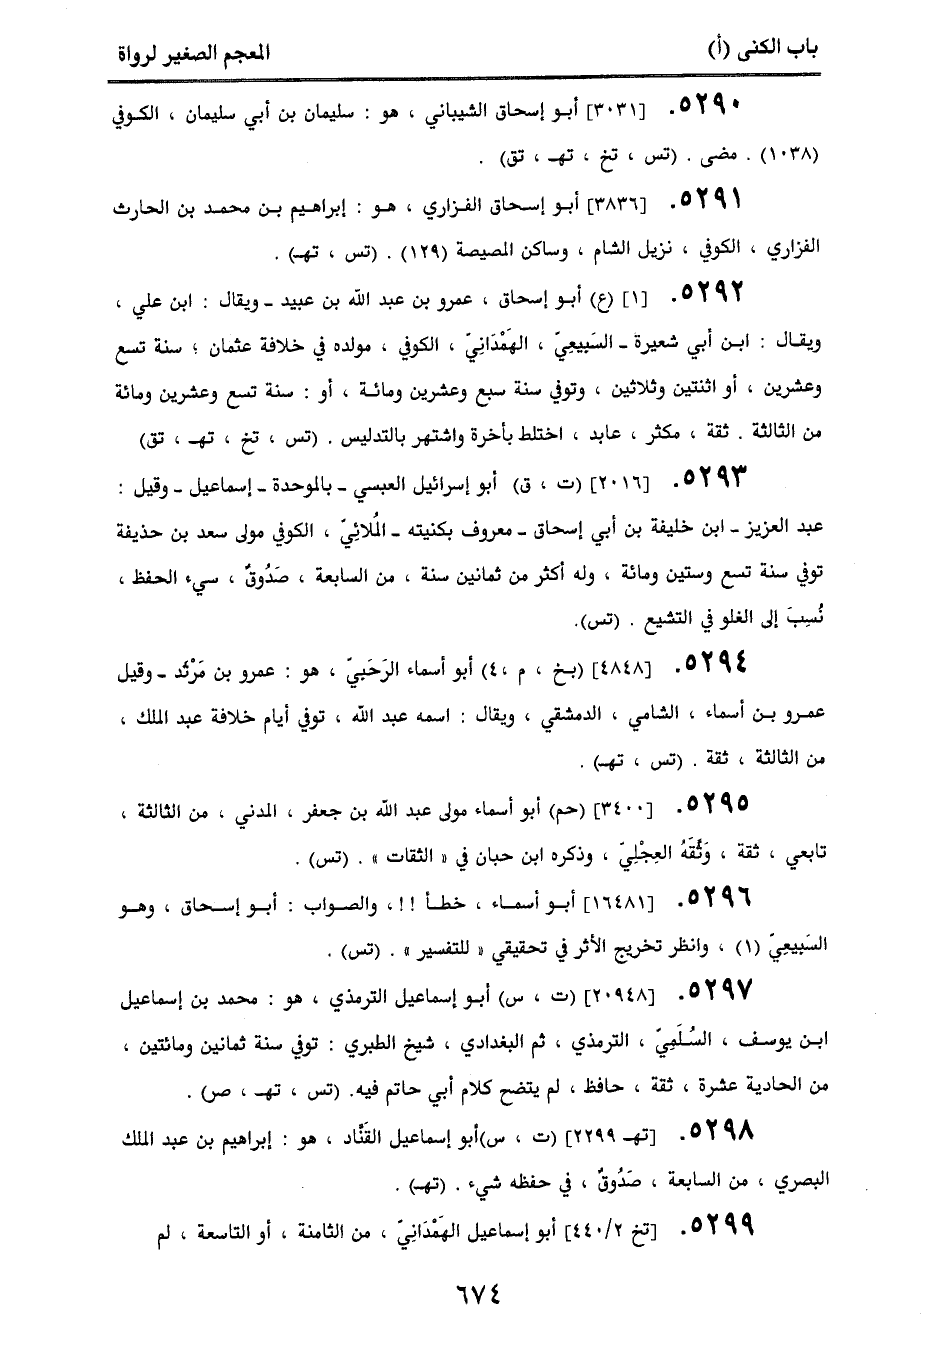 باب الكنى (أ)
المعجم الصغير لرواة
٥٢٩٠. [٣٠٣١] أبو إسحاق الشيباني ، هو : سليمان بن أبي سليمان ، الكوفي
(١٠٣٨) . مضى . (تس ، تخ ، تهـ ، تق) .
٥٢٩١. [٣٨٣٦] أبو إسحاق الفزاري ، هو : إبراهيم بن محمد بن الحارث
الفزاري ، الكوفي ، نزيل الشام ، وساكن المصيصة (١٢٩) . (تس ، تهـ) .
٥٢٩٢. [١] (ع) أبو إسحاق ، عمرو بن عبد الله بن عبيد ـ ويقال : ابن علي ،
ويقال : ابن أبي شعيرة ـ السَبيعِيّ ، الهَمْدَانِيّ ، الكوفي ، مولده في خلافة عثمان ؛ سنة تسع
وعشرين ، أو اثنتين وثلاثين ، وتوفي سنة سبع وعشرين ومائة ، أو : سنة تسع وعشرين ومائة
من الثالثة . ثقة ، مكثر ، عابد ، اختلط بأخرة واشتهر بالتدليس . (تس ، تخ ، تهـ ، تق)
٥٢٩٣. [٢٠١٦] (ت ، ق) أبو إسرائيل العبسي ـ بالموحدة ـ إسماعيل ـ وقيل :
عبد العزيز ـ ابن خليفة بن أبي إسحاق ـ معروف بكنيته ـ المُلائِيّ ، الكوفي مولى سعد بن حذيفة
توفي سنة تسع وستين ومائة ، وله أكثر من ثمانين سنة ، من السابعة ، صَدُوقٌ ، سيء الحفظ ،
نُسِبَ إلى الغلو في التشيع . (تس).
٥٢٩٤. [٤٨٤٨] (بخ ، م ،٤) أبو أسماء الرَحَبيّ ، هو : عمرو بن مَرْثَد ـ وقيل
عمرو بن أسماء ، الشامي ، الدمشقي ، ويقال : اسمه عبد الله ، توفي أيام خلافة عبد الملك ،
من الثالثة ، ثقة . (تس ، تهـ) .
٥٢٩٥. [٣٤٠٠] (حم) أبو أسماء مولى عبد الله بن جعفر ، المدني ، من الثالثة ،
تابعي ، ثقة ، وَثَّقَهُ العِجْلِيّ ، وذكره ابن حبان في « الثقات » . (تس) .
٥٢٩٦. [١٦٤٨١] أبو أسماء ، خطأ !!، والصواب : أبو إسحاق ، وهو
السَبيعِيّ (١) ، وانظر تخريج الأثر في تحقيقي « للتفسير » . (تس) .
٥٢٩٧. [٢٠٩٤٨] (ت ، س) أبو إسماعيل الترمذي ، هو : محمد بن إسماعيل
ابن يوسف ، السُلَمِيّ ، الترمذي ، ثم البغدادي ، شيخ الطبري : توفي سنة ثمانين ومائتين ،
من الحادية عشرة ، ثقة ، حافظ ، لم يتضح كلام أبي حاتم فيه. (تس ، تهـ ، ص) .
٥٢٩٨. [تهـ ٢٢٩٩] (ت ، س)أبو إسماعيل القَنَّاد ، هو : إبراهيم بن عبد الملك
البصري ، من السابعة ، صَدُوقٌ ، في حفظه شيء . (تهـ) .
٥٢٩٩. [تخ ٤٤٠/٢] أبو إسماعيل الهَمْدَانِيّ ، من الثامنة ، أو التاسعة ، لم
٦٧٤